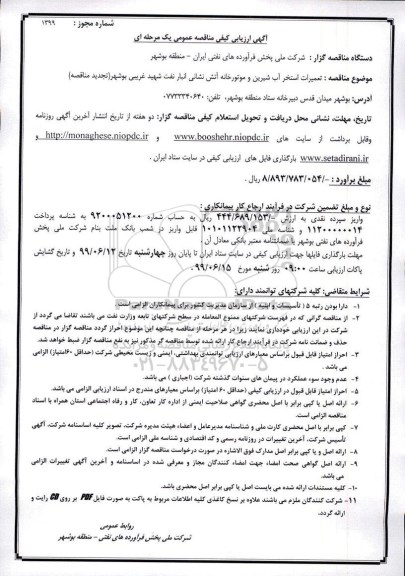 شماره مجوز : ۱۳۹۹
آگهی ارزیابی کیفی مناقصه عمومی یک مرحله ای
دستگاه مناقصه گزار : شرکت ملی پخش فرآورده های نفتی ایران – منطقه بوشهر
موضوع مناقصه : تعمیرات استخر آب شیرین و موتورخانه آتش نشانی انبار نفت شهید غریبی بوشهر(تجدید مناقصه)
آدرس: بوشهر میدان قدس دبیرخانه ستاد منطقه بوشهر، تلفن: ۰۷۷۳۳۳۴۰۶۴۰
تاریخ، مهلت، نشانی محل دریافت و تحویل استعلام کیفی مناقصه گزار: دو هفته از تاریخ انتشار آخرین آگهی روزنامه
وقابل برداشت از سایت های www.booshehr.niopdc.ir و http://monaghese.niopdc.ir و
www.setadirani.ir بارگذاری فایل های ارزیابی کیفی در سایت ستاد ایران .
مبلغ برآورد : -/۸/۸۹۳/۷۸۳/۰۵۴ ریال .
نوع و مبلغ تضمین شرکت در فرآیند ارجاع کار پیمانکاری :
واریز سپرده نقدی به ارزش -/۴۴۴/۶۸۹/۱۵۳ ریال به حساب شماره ۹۲۰۰۰۵۱۲۰۰ به شناسه پرداخت
۱۱۲۰۰۰۰۰۰۱۴ و شناسه ملی ۱۰۱۰۱۱۲۳۹۰۴ قابل واریز در شعب بانک ملت بنام شرکت ملی پخش
فرآورده های نفتی بوشهر یا ضمانتنامه معتبر بانکی معادل آن .
مهلت بارگذاری فایلها جهت ارزیابی کیفی در سایت ستاد ایران تا پایان روز چهارشنبه تاریخ ۹۹/۰۶/۱۲ و تاریخ گشایش
پاکات ارزیابی ساعت ۰۹:۰۰ روز شنبه مورخ ۹۹/۰۶/۱۵ .
شرایط متقاضی: کلیه شرکتهای توانمند دارای:
۱- دارا بودن رتبه ۵ ( تأسیسات و ابنیه ) از سازمان مدیریت کشور برای پیمانکاران الزامی است.
۲- از مناقصه گرانی که در فهرست شرکتهای ممنوع المعامله در سطح شرکتهای تابعه وزارت نفت می باشند تقاضا می گردد از
شرکت در این ارزیابی خودداری نمایند زیرا در هر مرحله از مناقصه چنانچه این موضوع احراز گردد مناقصه گزار در مناقصه
حذف و ضمانت نامه شرکت در فرآیند ارجاع کار ارائه شده توسط مناقصه گر مذکور نیز به نفع مناقصه گزار ضبط خواهد شد.
۳- احراز امتیاز قابل قبول براساس معیارهای ارزیابی توانمندی بهداشتی، ایمنی و زیست محیطی شرکت (حداقل ۶۰امتیاز) الزامی
می باشد .
۴- عدم وجود سوء عملکرد در پیمان های سنوات گذشته شرکت (اجباری ) می باشد.
۵- احراز امتیاز قابل قبول در ارزیابی کیفی (حداقل ۶۰ امتیاز) براساس معیارهای مندرج در اسناد ارزیابی الزامی می باشد.
۶- ارائه اصل یا کپی برابر با اصل محضری گواهی صلاحیت ایمنی از اداره کار تعاون، کار و رفاه اجتماعی استان همراه با اسناد
مناقصه الزامی است.
۷- کپی برابر با اصل محضری کارت ملی و شناسنامه مدیرعامل و اعضاء هیئت مدیره شرکت، تصویر کلیه اساسنامه شرکت، آگهی
تأسیس شرکت، آخرین تغییرات در روزنامه رسمی و کد اقتصادی و شناسه ملی الزامی است.
۸- ارائه اصل و یا کپی برابر اصل مدارک فوق الاشاره در صورت درخواست مناقصه گزار الزامی است.
۹- ارائه اصل گواهی صحت امضاء جهت امضاء کنندگان مجاز و معرفی شده در اساسنامه و آخرین آگهی تغییرات الزامی
می باشد.
۱۰- کلیه مستندات ارائه شده می بایست اصل یا کپی برابر اصل محضری باشد.
۱۱- شرکت کنندگان ملزم می باشند علاوه بر نسخ کاغذی کلیه اطلاعات مربوط به پاکت به صورت فایل PDF بر روی CD رایت و
ارائه گردد.
روابط عمومی
شرکت ملی پخش فراورده های نفتی – منطقه بوشهر
۰۲۱-۸۸۳۴۹۶۷۰-۵